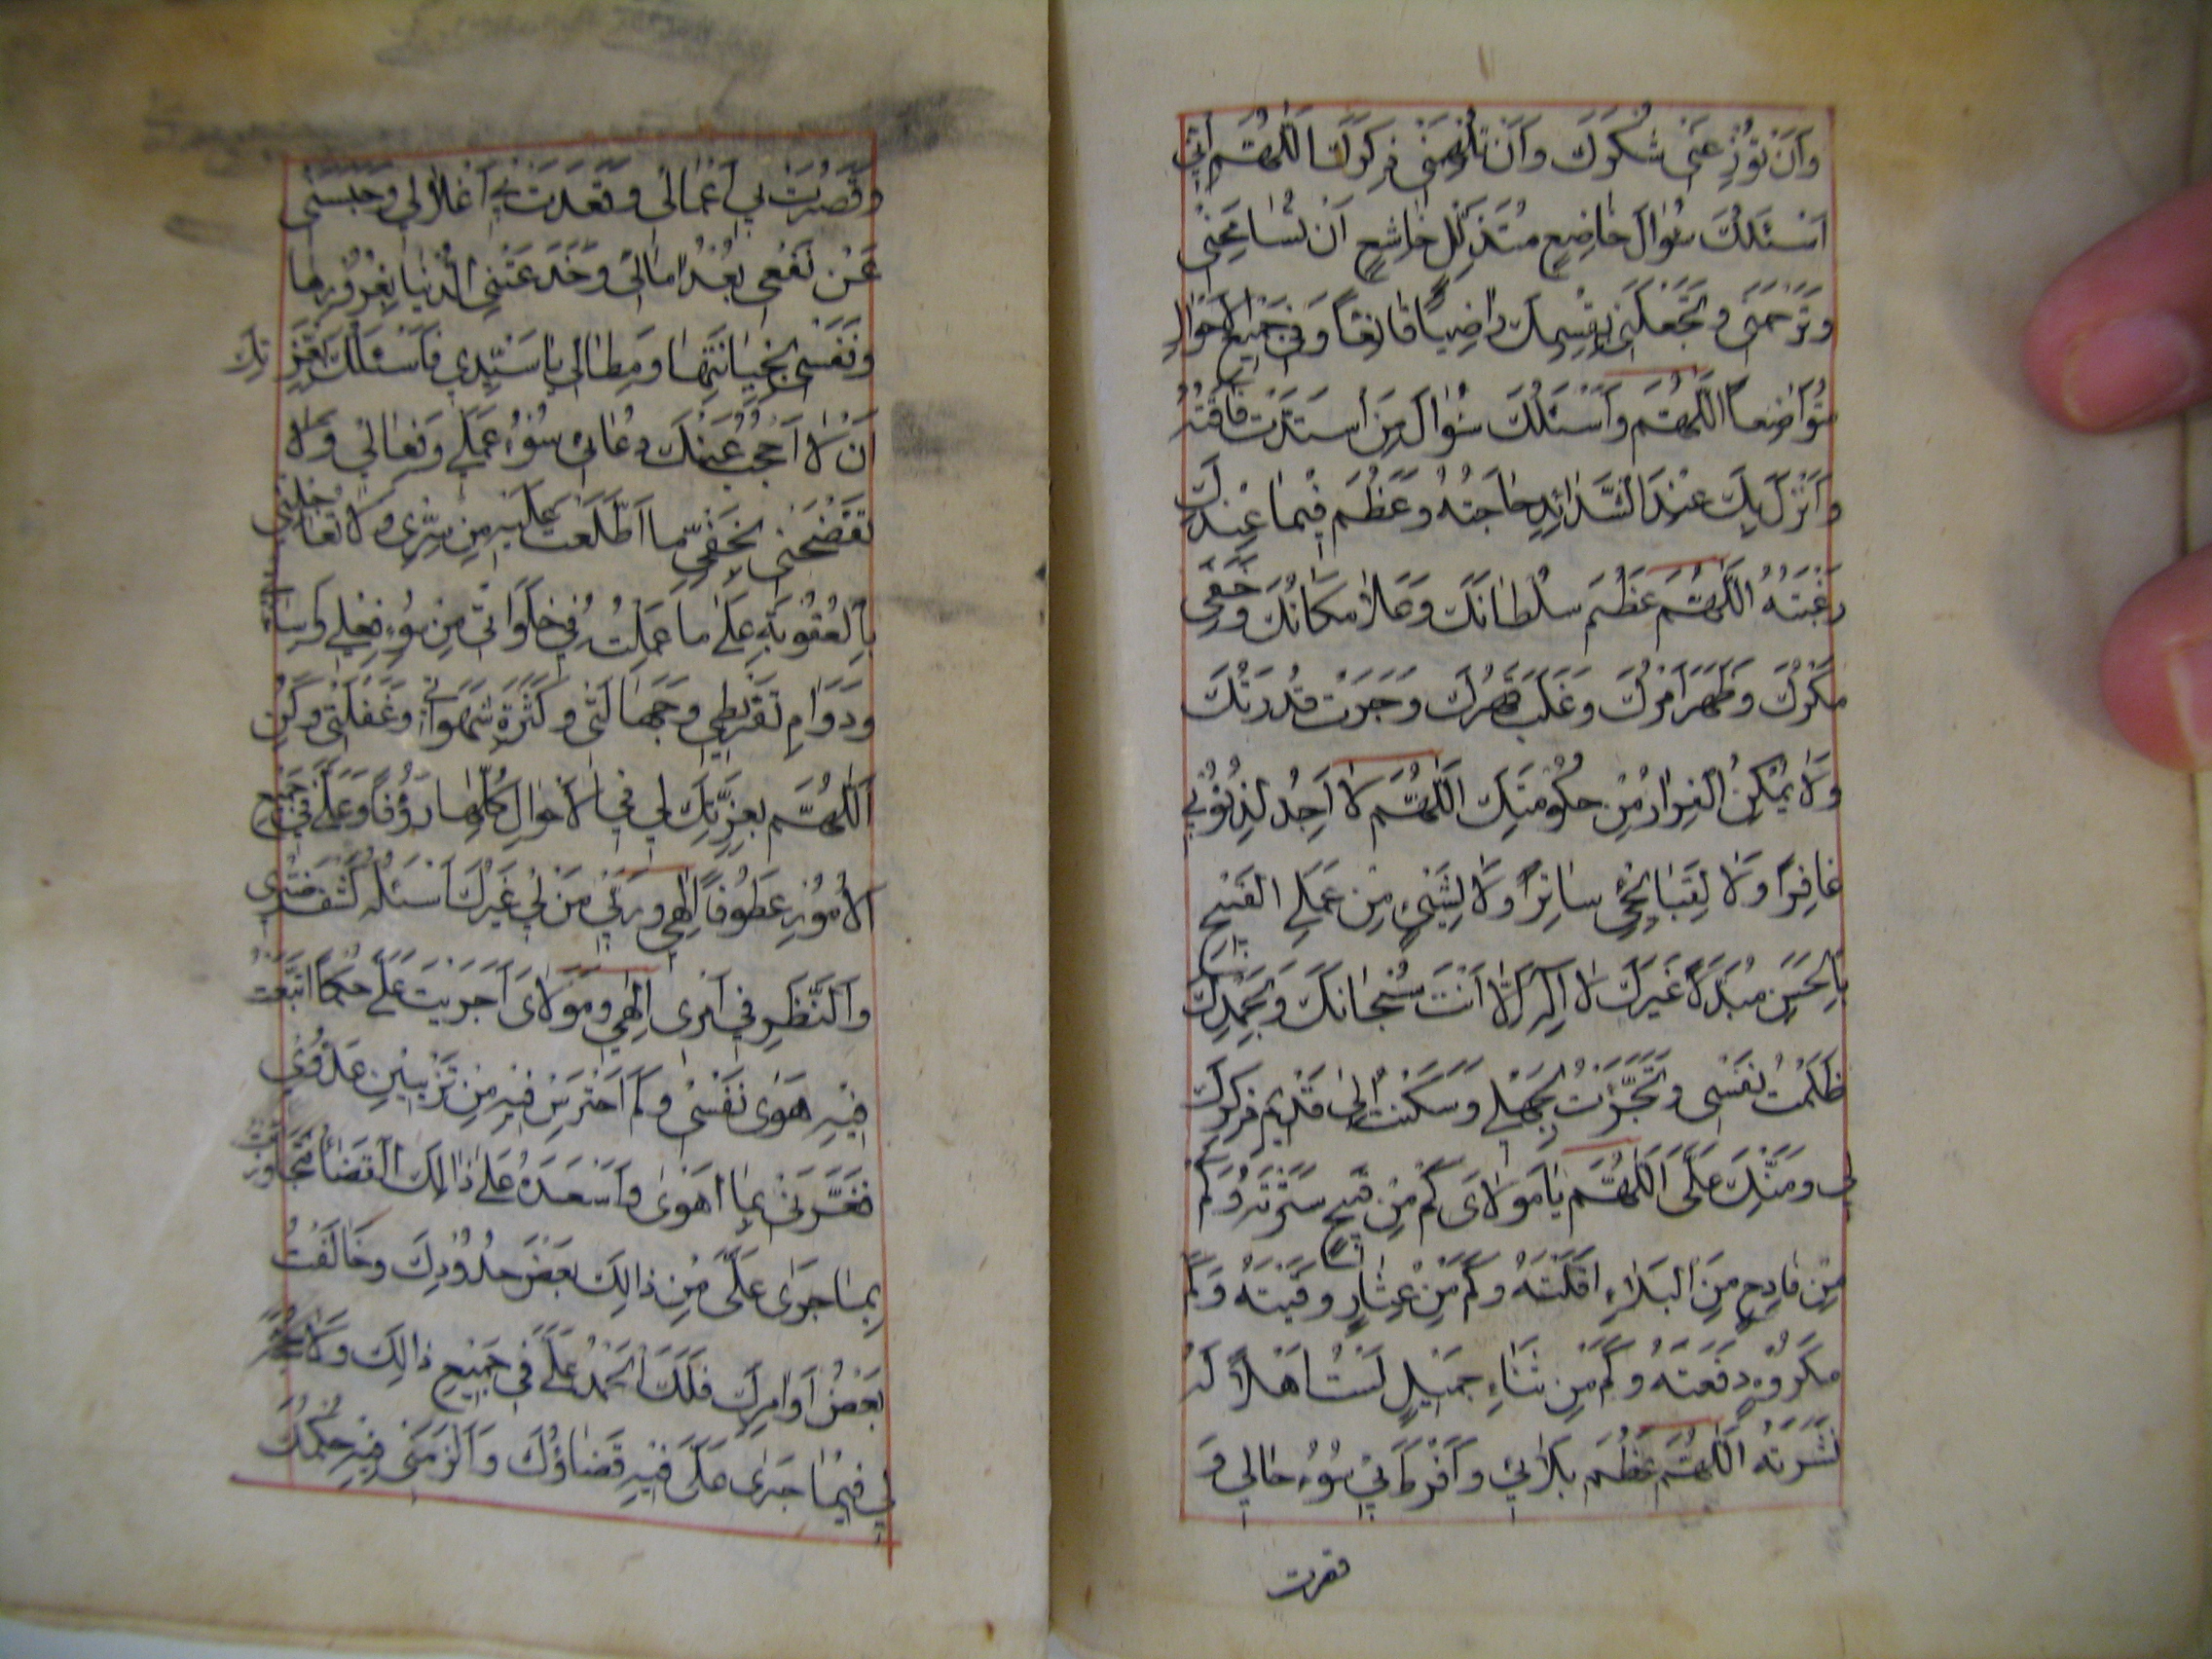 وَاَنْ تُوْزِعَنِی شُكْرَكَ وَاَنْ تُلْهِمَنِی ذِكْرَكَ اَللّٰهُمَّ اِنِّی
اَسْئَلُكَ سُؤالَ خاضِعٍ مُتَذَلِّلٍ خاشِعٍ اَنْ تُسامِحَنِی
وَتَرْحَمَنِی وَتَجْعَلَنِی بِقِسْمِكَ راضِیاً قانِعاً وَفِی جَمِیْعِ الْاَحْوالِ
مُتَواضِعاً اَللّٰهُمَّ وَاَسْئَلُكَ سُؤالَ مَنِ اسْتَدَّتْ فاقَتُهُ
وَاَنْزَلَ بِكَ عِنْدَ الشَّدائِدِ حاجَتَهُ وَعَظُمَ فِیْما عِنْدَكَ
رَغْبَتُهُ اَللّٰهُمَّ عَظُمَ سُلْطانُكَ وَعَلا مَكانُكَ وَخَفِیَ
مَكْرُكَ وَظَهَرَ اَمْرُكَ وَغَلَبَ قَهْرُكَ وَجَرَتْ قُدْرَتُكَ
وَلا یُمْكِنُ الْفِرارُ مِنْ حُكُوْمَتِكَ اَللّٰهُمَّ لا اَجِدُ لِذُنُوْبِی
غافِراً وَلا لِقَبائِحِی ساتِراً وَلا لِشَیْءٍ مِنْ عَمَلِیَ الْقَبِیْحِ
بِالْحَسَنِ مُبَدِّلاً غَیْرَكَ لا اِلٰهَ اِلَّا اَنْتَ سُبْحانَكَ وَبِحَمْدِكَ
ظَلَمْتُ نَفْسِی وَتَجَرَّئْتُ بِجَهْلِی وَسَكَنْتُ اِلٰی قَدِیْمِ ذِكْرِكَ
لِی وَمَنِّكَ عَلَیَّ اَللّٰهُمَّ یا مَوْلایَ كَمْ مِنْ قَبِیْحٍ سَتَرْتَهُ وَكَمْ
مِنْ فادِحٍ مِنَ الْبَلاءِ اَقَلْتَهُ وَكَمْ مِنْ عِثارٍ وَقَیْتَهُ وَكَمْ
مِنْ مَكْرُوْهٍ دَفَعْتَهُ وَكَمْ مِنْ ثَناءٍ جَمِیْلٍ لَسْتُ اَهْلاً لَهُ
نَشَرْتَهُ اَللّٰهُمَّ عَظُمَ بَلائِی وَاَفْرَطَ بِی سُوْءُ حالِی وَ
قصرت
وَقَصُرَتْ بِی اَعْمالِی وَقَعَدَتْ بِی اَغْلالِی وَحَبَسَنِی
عَنْ نَفْعِی بُعْدُ اٰمالِی وَخَدَعَتْنِی الدُّنْیا بِغُرُوْرِها
وَنَفْسِی بِخِیانَتِها وَمِطالِی یا سَیِّدِی فَاَسْئَلُكَ بِعِزَّتِكَ
اَنْ لا یَحْجُبَ عَنْكَ دُعائِی سُوْءُ عَمَلِی وَفِعالِی وَلا
تَفْضَحْنِی بِخَفِیِّ مَا اطَّلَعْتَ عَلَیْهِ مِنْ سِرِّی وَلا تُعاجِلْنِی
بِالْعُقُوْبَةِ عَلٰی ما عَمِلْتُهُ فِی خَلَواتِی مِنْ سُوْءِ فِعْلِی وَاِسائَتِی
وَدَوامِ تَفْرِیْطِی وَجَهالَتِی وَكَثْرَةِ شَهَواتِی وَغَفْلَتِی وَكُنِ
اللّٰهُمَّ بِعِزَّتِكَ لِی فِی الْاَحْوالِ كُلِّها رَؤُفاً وَعَلَیَّ فِی جَمِیْعِ
الْاُمُوْرِ عَطُوْفاً اِلٰهِی وَرَبِّی مَنْ لِی غَیْرُكَ اَسْئَلُهُ كَشْفَ ضُرِّی
وَالنَّظَرَ فِی اَمْرِی اِلٰهِی وَمَوْلایَ اَجْرَیْتَ عَلَیَّ حُكْماً اتَّبَعْتُ
فِیْهِ هَوٰی نَفْسِی وَلَمْ اَحْتَرِسْ فِیْهِ مِنْ تَزْیِیْنِ عَدُوِّی
فَغَرَّنِی بِما اَهْوٰی وَاَسْعَدَهُ عَلٰی ذالِكَ الْقَضاءُ فَتَجاوَزْتُ
بِما جَرٰی عَلَیَّ مِنْ ذالِكَ بَعْضَ حُدُوْدِكَ وَخالَفْتُ
بَعْضَ اَوامِرِكَ فَلَكَ الْحَمْدُ عَلَیَّ فِی جَمِیْعِ ذالِكَ وَلا حُجَّةَ
لِی فِیْما جَرٰی عَلَیَّ فِیْهِ قَضاؤُكَ وَاَلْزَمَنِی فِیْهِ حُكْمُكَ